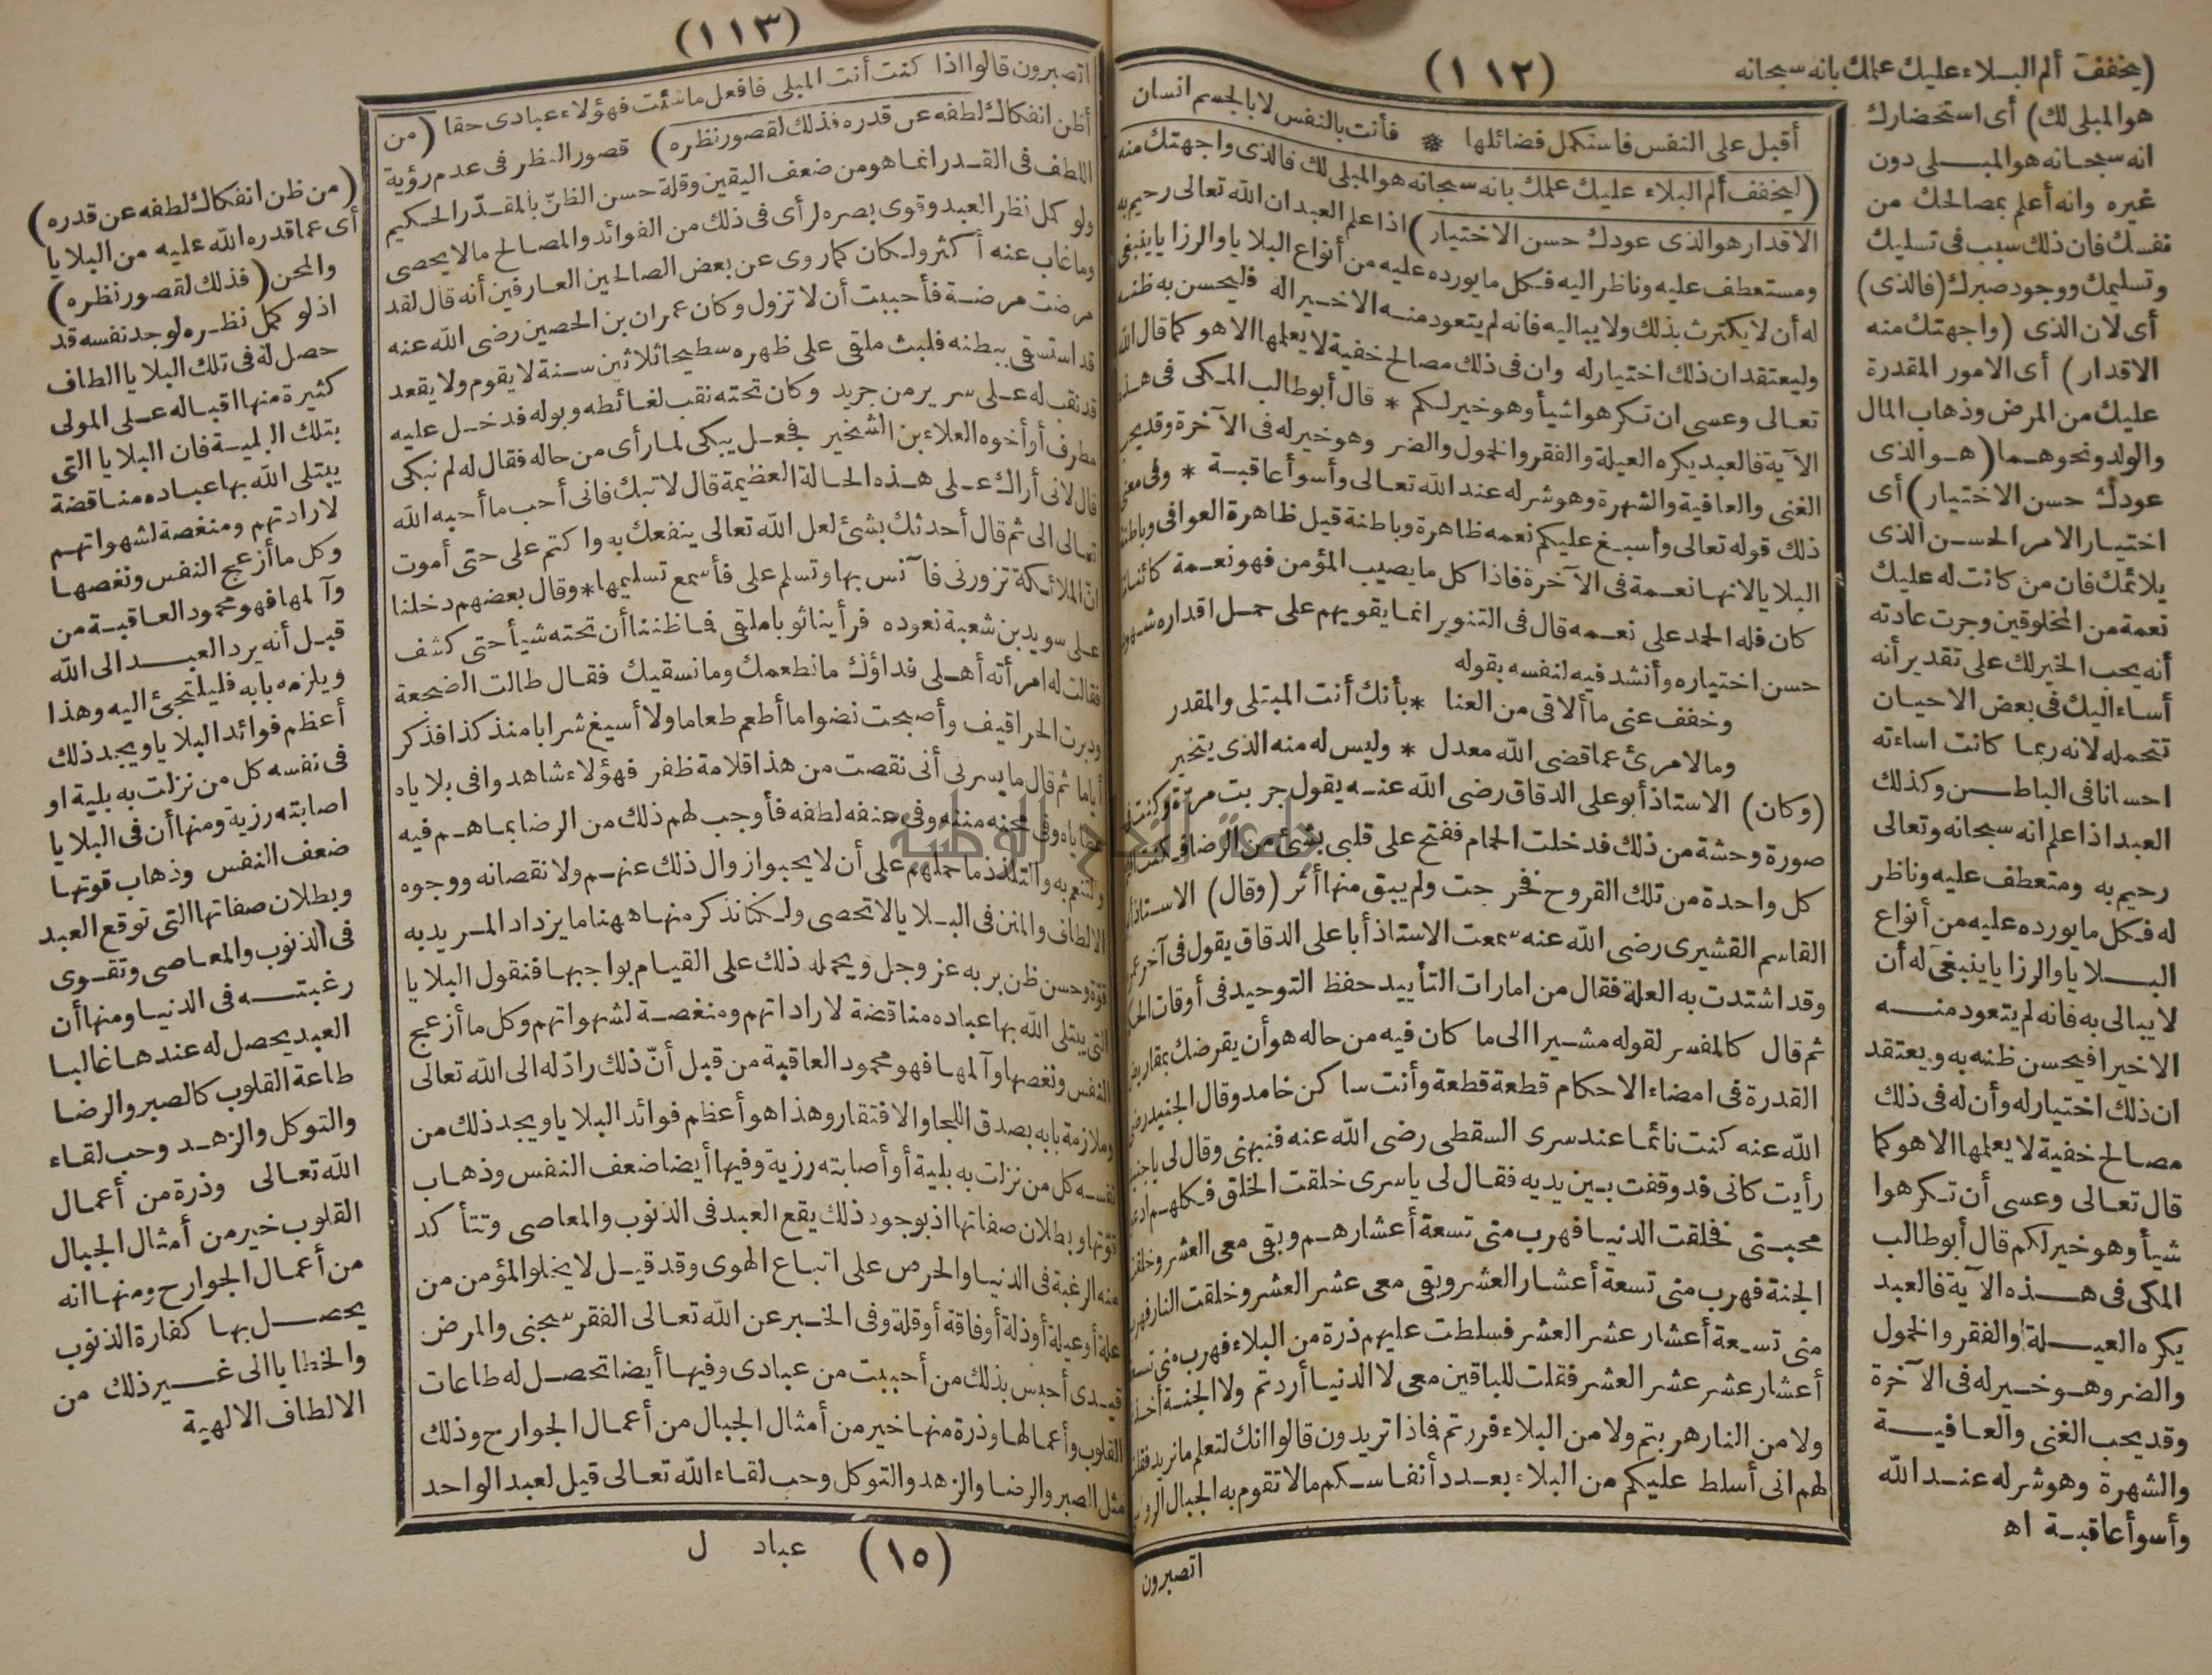 (١١٢)
أقبل على النفس فاستكمل فضائلها * فأنت بالنفس لا بالجسم انسان
(ليخفف ألم البلاء عليك علمك بانه سبحانه هو المبلى لك فالذى واجهتك منه
الاقدار هو الذى عودك حسن الاختيار) اذا علم العبد ان الله تعالى رحيم به
ومستعطف عليه وناظر اليه فكل ما يورده عليه من أنواع البلايا والرزايا ينبغى
له أن لا يكترث بذلك ولا يباليه فانه لم يتعود منه الا خيرا له فليحسن به ظنه
وليعتقد ان ذلك اختيار له وان فى ذلك مصالح خفية لا يعلمها الا هو كما قال الله
تعالى وعسى ان تكرهوا شيأ وهو خير لكم * قال أبو طالب المكى فى هذه
الآية فالعبد يكره العيلة والفقر والخمول والضر وهو خير له فى الآخرة وقد يحب
الغنى والعافية والشهرة وهو شر له عند الله تعالى وأسوأ عاقبة * وفى معنى
ذلك قوله تعالى وأسبغ عليكم نعمه ظاهرة وباطنة قيل ظاهرة العوافى وباطنة
البلايا لانها نعمة فى الآخرة فاذا كل ما يصيب المؤمن فهو نعمة كائنا ما
كان فله الحمد على نعمه قال فى التنوير انما يقويهم على حمل اقداره شهود
حسن اختياره وأنشد فيه لنفسه بقوله
وخفف عنى ما ألاقى من العنا * بأنك أنت المبتلى والمقدر
وما لامرئ عما قضى الله معدل * وليس له منه الذى يتخير
(وكان) الاستاذ أبو على الدقاق رضى الله عنه يقول جربت مرة وكنت فى
صورة وحشة من ذلك فدخلت الحمام ففتح على قلبى بشئ من الرضا
كل واحدة من تلك القروح فخرجت ولم يبق منها أثر (وقال) الاستاذ أبو
القاسم القشيرى رضى الله عنه سمعت الاستاذ أبا على الدقاق يقول فى آخر عمره
وقد اشتدت به العلة فقال من امارات التأييد حفظ التوحيد فى أوقات الحكم
ثم قال كالمفسر لقوله مشيرا الى ما كان فيه من حاله هو أن يقرضك بمقاريض
القدرة فى امضاء الاحكام قطعة قطعة وأنت ساكن خامد وقال الجنيد رضى
الله عنه كنت نائما عند سرى السقطى رضى الله عنه فنبهنى وقال لى يا جنيد
رأيت كانى قد وقفت بين يديه فقال لى يا سرى خلقت الخلق فكلهم ادعوا
محبتى فخلقت الدنيا فهرب منى تسعة أعشارهم وبقى معى العشر وخلقت
الجنة فهرب منى تسعة أعشار العشر وبقى معى عشر العشر وخلقت النار فهرب
منى تسعة أعشار عشر العشر فسلطت عليهم ذرة من البلاء فهرب منى تسعة
أعشار عشر عشر العشر فقلت للباقين معى لا الدنيا أردتم ولا الجنة أخذتم
ولا من النار هربتم ولا من البلاء فررتم فاذا تريدون قالوا انك لتعلم ما نريد فقلت
لهم انى أسلط عليكم من البلاء بعدد أنفاسكم ما لا تقوم به الجبال الرواسى
اتصبرون
(يخفف ألم البلاء عليك علمك بانه سبحانه
هو المبلى لك) أى استحضارك
انه سبحانه هو المبلى دون
غيره وانه أعلم بمصالحك من
نفسك فان ذلك سبب فى تسليك
وتسليمك ووجود صبرك (فالذى)
أى لان الذى (واجهتك منه
الاقدار) أى الامور المقدرة
عليك من المرض وذهاب المال
والولد ونحوهما (هو الذى
عودك حسن الاختيار) أى
اختيار الامر الحسن الذى
يلائمك فان من كانت له عليك
نعمة من المخلوقين وجرت عادته
أنه يحب الخير لك على تقدير أنه
أساء اليك فى بعض الاحيان
تتحمله لانه ربما كانت اساءته
احسانا فى الباطن وكذلك
العبد اذا علم انه سبحانه وتعالى
رحيم به ومتعطف عليه وناظر
له فكل ما يورده عليه من أنواع
البلايا والرزايا ينبغى له أن
لا يبالى به فانه لم يتعود منه
الا خيرا فيحسن ظنه به ويعتقد
ان ذلك اختيار له وأن له فى ذلك
مصالح خفية لا يعلمها الا هو كما
قال تعالى وعسى أن تكرهوا
شيأ وهو خير لكم قال أبو طالب
المكى فى هذه الآية فالعبد
يكره العيلة والفقر والخمول
والضر وهو خير له فى الآخرة
وقد يحب الغنى والعافية
والشهرة وهو شر له عند الله
وأسوأ عاقبة اه
(١١٣)
اتصبرون قالوا اذا كنت أنت المبلى فافعل ما شئت فهؤلاء عبادى حقا (من
أظن انفكاك لطفه عن قدره فذلك لقصور نظره) قصور النظر فى عدم رؤية
اللطف فى القدر انما هو من ضعف اليقين وقلة حسن الظن بالمقدّر الحكيم
ولو كمل نظر العبد وقوى بصره لرأى فى ذلك من الفوائد والمصالح ما لا يحصى
وما غاب عنه أكثر ولكان كما روى عن بعض الصالحين العارفين أنه قال لقد
مرضت مرضة فأحببت أن لا تزول وكان عمران بن الحصين رضى الله عنه
قد استسقى ببطنه فلبث ملقى على ظهره سطيحا ثلاثين سنة لا يقوم ولا يقعد
قد نقب له على سرير من جريد وكان تحته نقب لغائطه وبوله فدخل عليه
مطرف أو أخوه العلاء بن الشخير فجعل يبكى لما رأى من حاله فقال له لم تبكى
قال لانى أراك على هذه الحالة العظيمة قال لا تبك فانى أحب ما أحبه الله
تعالى الى ثم قال أحدثك بشئ لعل الله تعالى ينفعك به واكتم على حتى أموت
انّ الملائكة تزورنى فآنس بها وتسلم على فأسمع تسليمها * وقال بعضهم دخلنا
على سويد بن شعبة نعوده فرأينا ثوبا ملقى فما ظننا أن تحته شيأ حتى كشف
فقالت له امرأته أهلى فداؤك ما نطعمك وما نسقيك فقال طالت الضجعة
ودبرت الحراقيف وأصبحت نضوا ما أطعم طعاما ولا أسيغ شرابا منذ كذا فذكر
أياما ثم قال ما يسرنى أنى نقصت من هذا قلامة ظفر فهؤلاء شاهدوا فى بلاياه
عطاياه وفى محنه مننه وفى عنفه لطفه فأوجب لهم ذلك من الرضا بما هم فيه
والتنعم به والتلذذ ما حملهم على أن لا يحبوا زوال ذلك عنهم ولا نقصانه ووجوه
الالطاف والمنن فى البلايا لا تحصى ولكنا نذكر منها ههنا ما يزداد المريد به
قوة وحسن ظن بربه عز وجل ويحمله ذلك على القيام بواجبها فنقول البلايا
التى يبتلى الله بها عباده مناقضة لاراداتهم ومنغصة لشهواتهم وكل ما أزعج
النفس ونغصها وآلمها فهو محمود العاقبة من قبل أنّ ذلك رادّ له الى الله تعالى
وملازمة بابه بصدق اللجا والافتقار وهذا هو أعظم فوائد البلايا ويجد ذلك من
نفسه كل من نزلت به بلية أو أصابته رزية وفيها أيضا ضعف النفس وذهاب
قوتها وبطلان صفاتها اذ بوجود ذلك يقع العبد فى الذنوب والمعاصى وتتأكد
منه الرغبة فى الدنيا والحرص على اتباع الهوى وقد قيل لا يخلو المؤمن من
علة أو عيلة أو ذلة أو فاقة أو قلة وفى الخبر عن الله تعالى الفقر سجنى والمرض
قيدى أحبس بذلك من أحببت من عبادى وفيها أيضا تحصل له طاعات
القلوب وأعمالها وذرة منها خير من أمثال الجبال من أعمال الجوارح وذلك
مثل الصبر والرضا والزهد والتوكل وحب لقاء الله تعالى قيل لعبد الواحد
(١٥) عباد ل
(من ظن انفكاك لطفه عن قدره)
أى عما قدره الله عليه من البلايا
والمحن (فذلك لقصور نظره)
اذ لو كمل نظره لوجد نفسه قد
حصل له فى تلك البلايا الطاف
كثيرة منها اقباله على المولى
بتلك البلية فان البلايا التى
يبتلى الله بها عباده مناقضة
لارادتهم ومنغصة لشهواتهم
وكل ما أزعج النفس ونغصها
وآلمها فهو محمود العاقبة من
قبل أنه يرد العبد الى الله
ويلزمه بابه فليلتجئ اليه وهذا
أعظم فوائد البلايا ويجد ذلك
فى نفسه كل من نزلت به بلية او
اصابته رزية ومنها أن فى البلايا
ضعف النفس وذهاب قوتها
وبطلان صفاتها التى توقع العبد
فى الذنوب والمعاصى وتقوى
رغبته فى الدنيا ومنها أن
العبد يحصل له عندها غالبا
طاعة القلوب كالصبر والرضا
والتوكل والزهد وحب لقاء
الله تعالى وذرة من أعمال
القلوب خير من أمثال الجبال
من أعمال الجوارح ومنها انه
يحصل بها كفارة الذنوب
والخطايا الى غير ذلك من
الالطاف الالهية